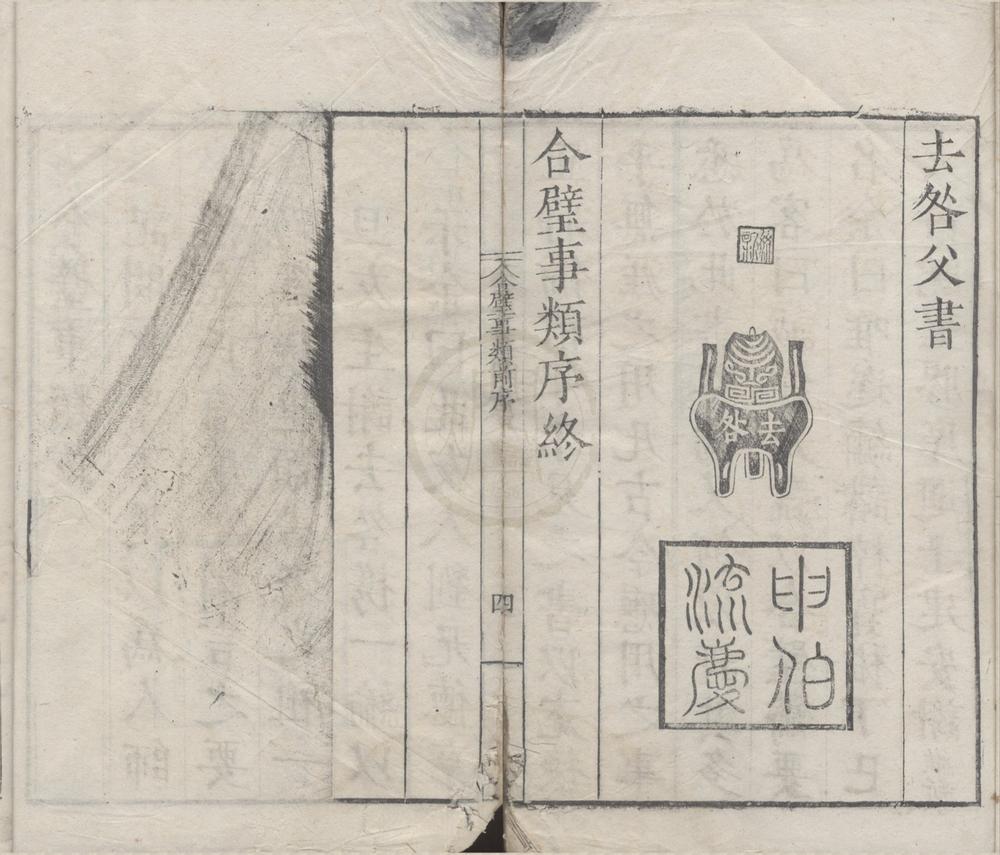 去咎父書
去咎
申伯
流慶
合璧事類序終
合璧事類前序
四